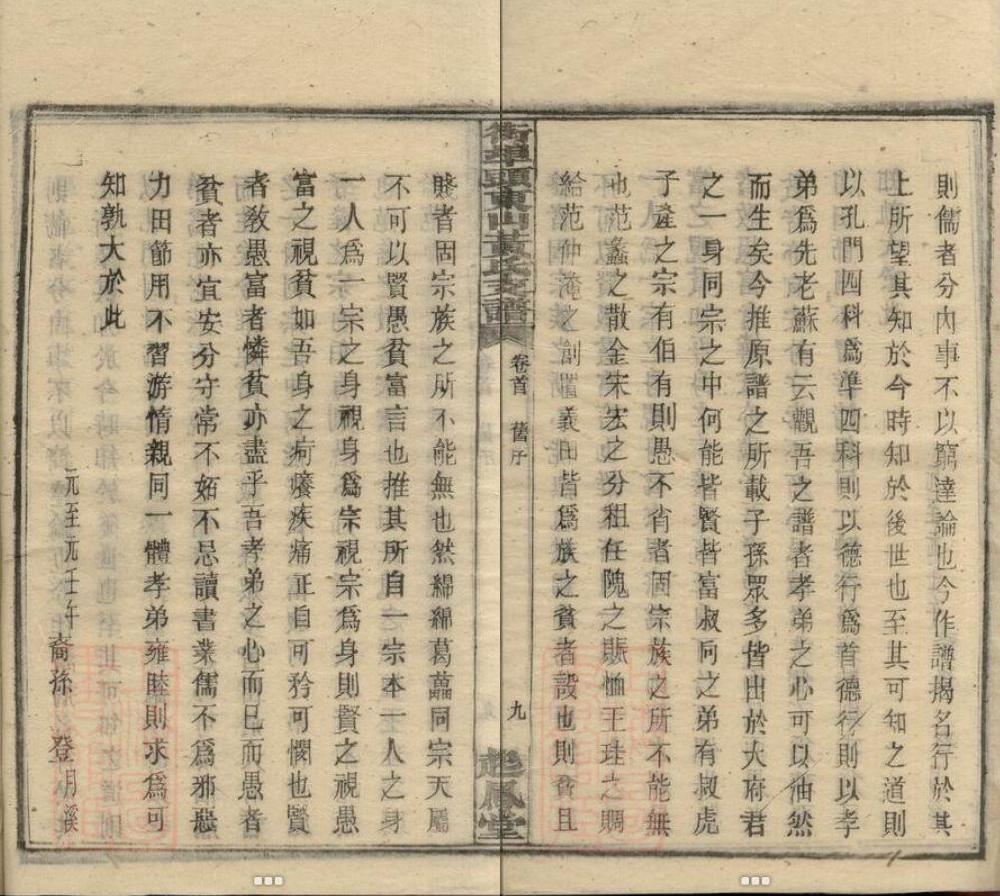 則儒者分內事不以窮達論也今作譜揭名行於其
上所望其知於今時知於後世也至其可知之道則
以孔門四科爲準四科則以德行爲首德行則以孝
弟爲先老蘇有云觀吾之譜者孝弟之心可以油然
而生矣今推原譜之所載子孫眾多皆出於大府君
之一身同宗之中何能皆賢皆富叔向之弟有叔虎
子產之宗有伯有則愚不肖者固宗族之所不能無
也范蠡之散金宋宏之分租任隗之賑恤王珪之賙
給范仲淹之創置義田皆爲族之貧者設也則貧且
衙埠頭東山黃氏支譜
卷首
舊序
九
起鳳堂
賤者固宗族之所不能無也然綿綿葛藟同宗天屬
不可以賢愚貧富言也推其所自一宗本一人之身
一人爲一宗之身視身爲宗視宗爲身則賢之視愚
富之視貧如吾身之疴癢疾痛正自可矜可憫也賢
者敎愚富者憐貧亦盡乎吾孝弟之心而已而愚者
貧者亦宜安分守常不妬不忌讀書業儒不爲邪慝
力田節用不習游惰親同一體孝弟雍睦則求爲可
知孰大於此
元至元壬午 裔孫 登 月溪